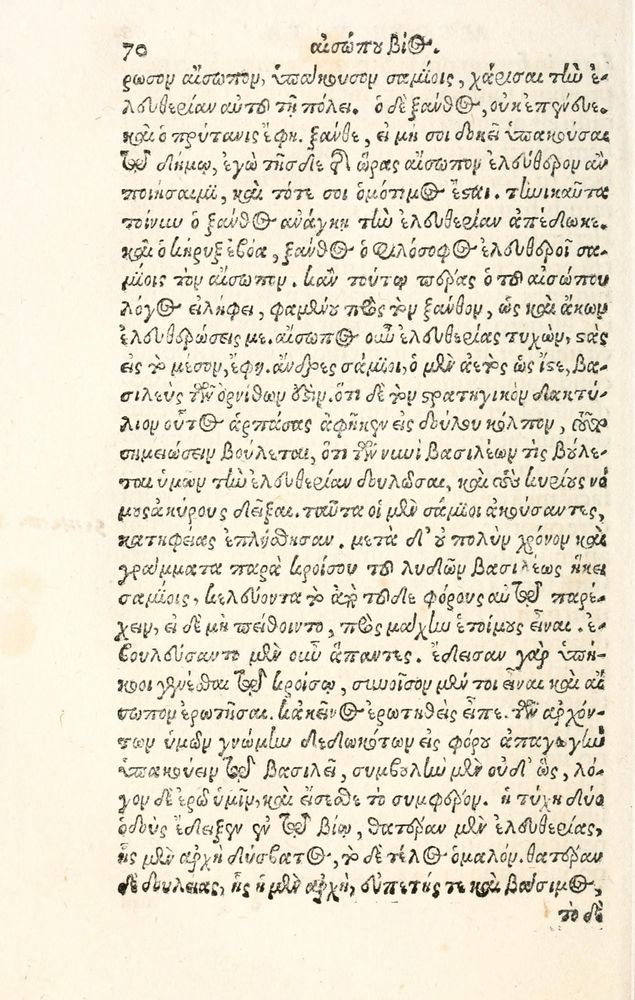 70 αἰσώπου βίος.
ρωσον αἴσωπον, ὑπάκουσον σαμίοις, χάρισαι τὴν ἐ-
λευθερίαν αὐτοῦ τῇ πόλει. ὁ δὲ ξάνθος, οὐκ ἐπένευε.
καὶ ὁ πρύτανις ἔφη. ξάνθε, εἰ μή σοι δοκεῖ ὑπακοῦσαι
τῷ δήμῳ, ἐγὼ τῆσδε τῆς ὥρας αἴσωπον ἐλεύθερον ἂν
ποιήσαιμι, καὶ τότε σοι ὁμότιμος ἔσται. τηνικαῦτα
τοίνυν ὁ ξάνθος ἀνάγκῃ τὴν ἐλευθερίαν ἀπέδωκε.
καὶ ὁ κήρυξ ἐβόα, ξάνθος ὁ φιλόσοφος ἐλευθεροῖ σα-
μίοις τὸν αἴσωπον. κἀν τούτῳ πέρας ὁ τοῦ αἰσώπου
λόγος εἰλήφει, φαμένου πρὸς τὸν ξάνθον, ὡς καὶ ἄκων
ἐλευθερώσεις με. αἴσωπος οὖν ἐλευθερίας τυχὼν, στὰς
εἰς τὸ μέσον, ἔφη. ἄνδρες σάμιοι, ὁ μὲν ἀετὸς ὡς ἴστε, βα-
σιλεὺς τῶν ὀρνίθων ἐστίν. ὅτι δὲ τὸν στρατηγικὸν δακτύ-
λιον οὗτος ἁρπάσας ἀφῆκεν εἰς δούλου κόλπον, τοῦτο
σημειώσειν βούλεται, ὅτι τῶν νυνὶ βασιλέων τὶς βούλε-
ται ὑμῶν τὴν ἐλευθερίαν δουλῶσαι, καὶ τοὺς κυρίους νό
μους ἀκύρους δεῖξαι. ταῦτα οἱ μὲν σάμιοι ἀκούσαντες,
κατηφείας ἐπλήσθησαν. μετὰ δ' οὐ πολὺν χρόνον καὶ
γράμματα παρὰ κροίσου τοῦ λυδῶν βασιλέως ἧκει
σαμίοις, κελεύοντα τὸ ἀπὸ τοῦδε φόρους αὐτῷ παρέ-
χειν, εἰ δὲ μὴ πείθοιντο, πρὸς μάχην ἑτοίμους εἶναι. ἐ-
βουλεύσαντο μὲν οὖν ἅπαντες. ἔδεισαν γὰρ ὑπή-
κοοι γενέσθαι τῷ κροίσῳ, συνοῖσον μέν τοι εἶναι καὶ αἴ
σωπον ἐρωτῆσαι. κἀκεῖνος ἐρωτηθεὶς εἶπε. τῶν ἀρχόν-
των ὑμῶν γνώμην δεδωκότων εἰς φόρου ἀπαγωγὴν
ὑπακούειν τῷ βασιλεῖ, συμβουλὴν μὲν οὐδ' ὣς, λό-
γον δὲ ἐρῶ ὑμῖν, καὶ εἴσεσθε τὸ συμφέρον. ἡ τύχη δύο
ὁδοὺς ἔδειξεν ἐν τῷ βίῳ, θατέραν μὲν ἐλευθερίας,
ἧς μὲν ἀρχὴ δύσβατος, τὸ δὲ τέλος ὁμαλόν. θατέραν
δὲ δουλείας, ἧς ἡ μὲν ἀρχὴ, εὐπετής τε καὶ βάσιμος,
τὸ δὲ